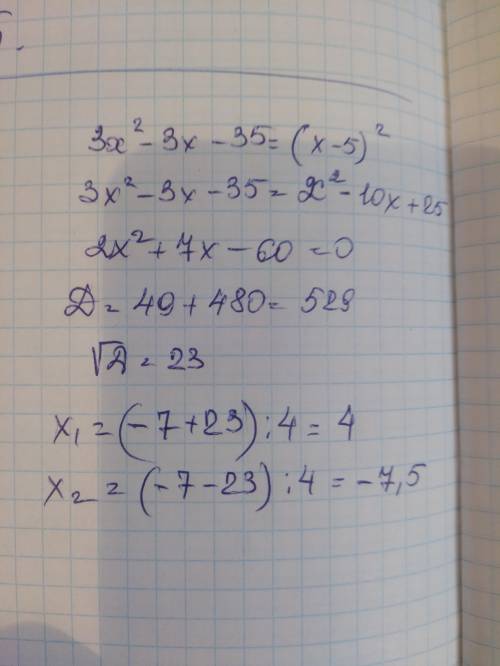 5.
3x² - 3x - 35 = (x - 5)²
3x² - 3x - 35 = x² - 10x + 25
2x² + 7x - 60 = 0
D = 49 + 480 = 529
√D = 23
x₁ = (-7 + 23) : 4 = 4
x₂ = (-7 - 23) : 4 = -7,5